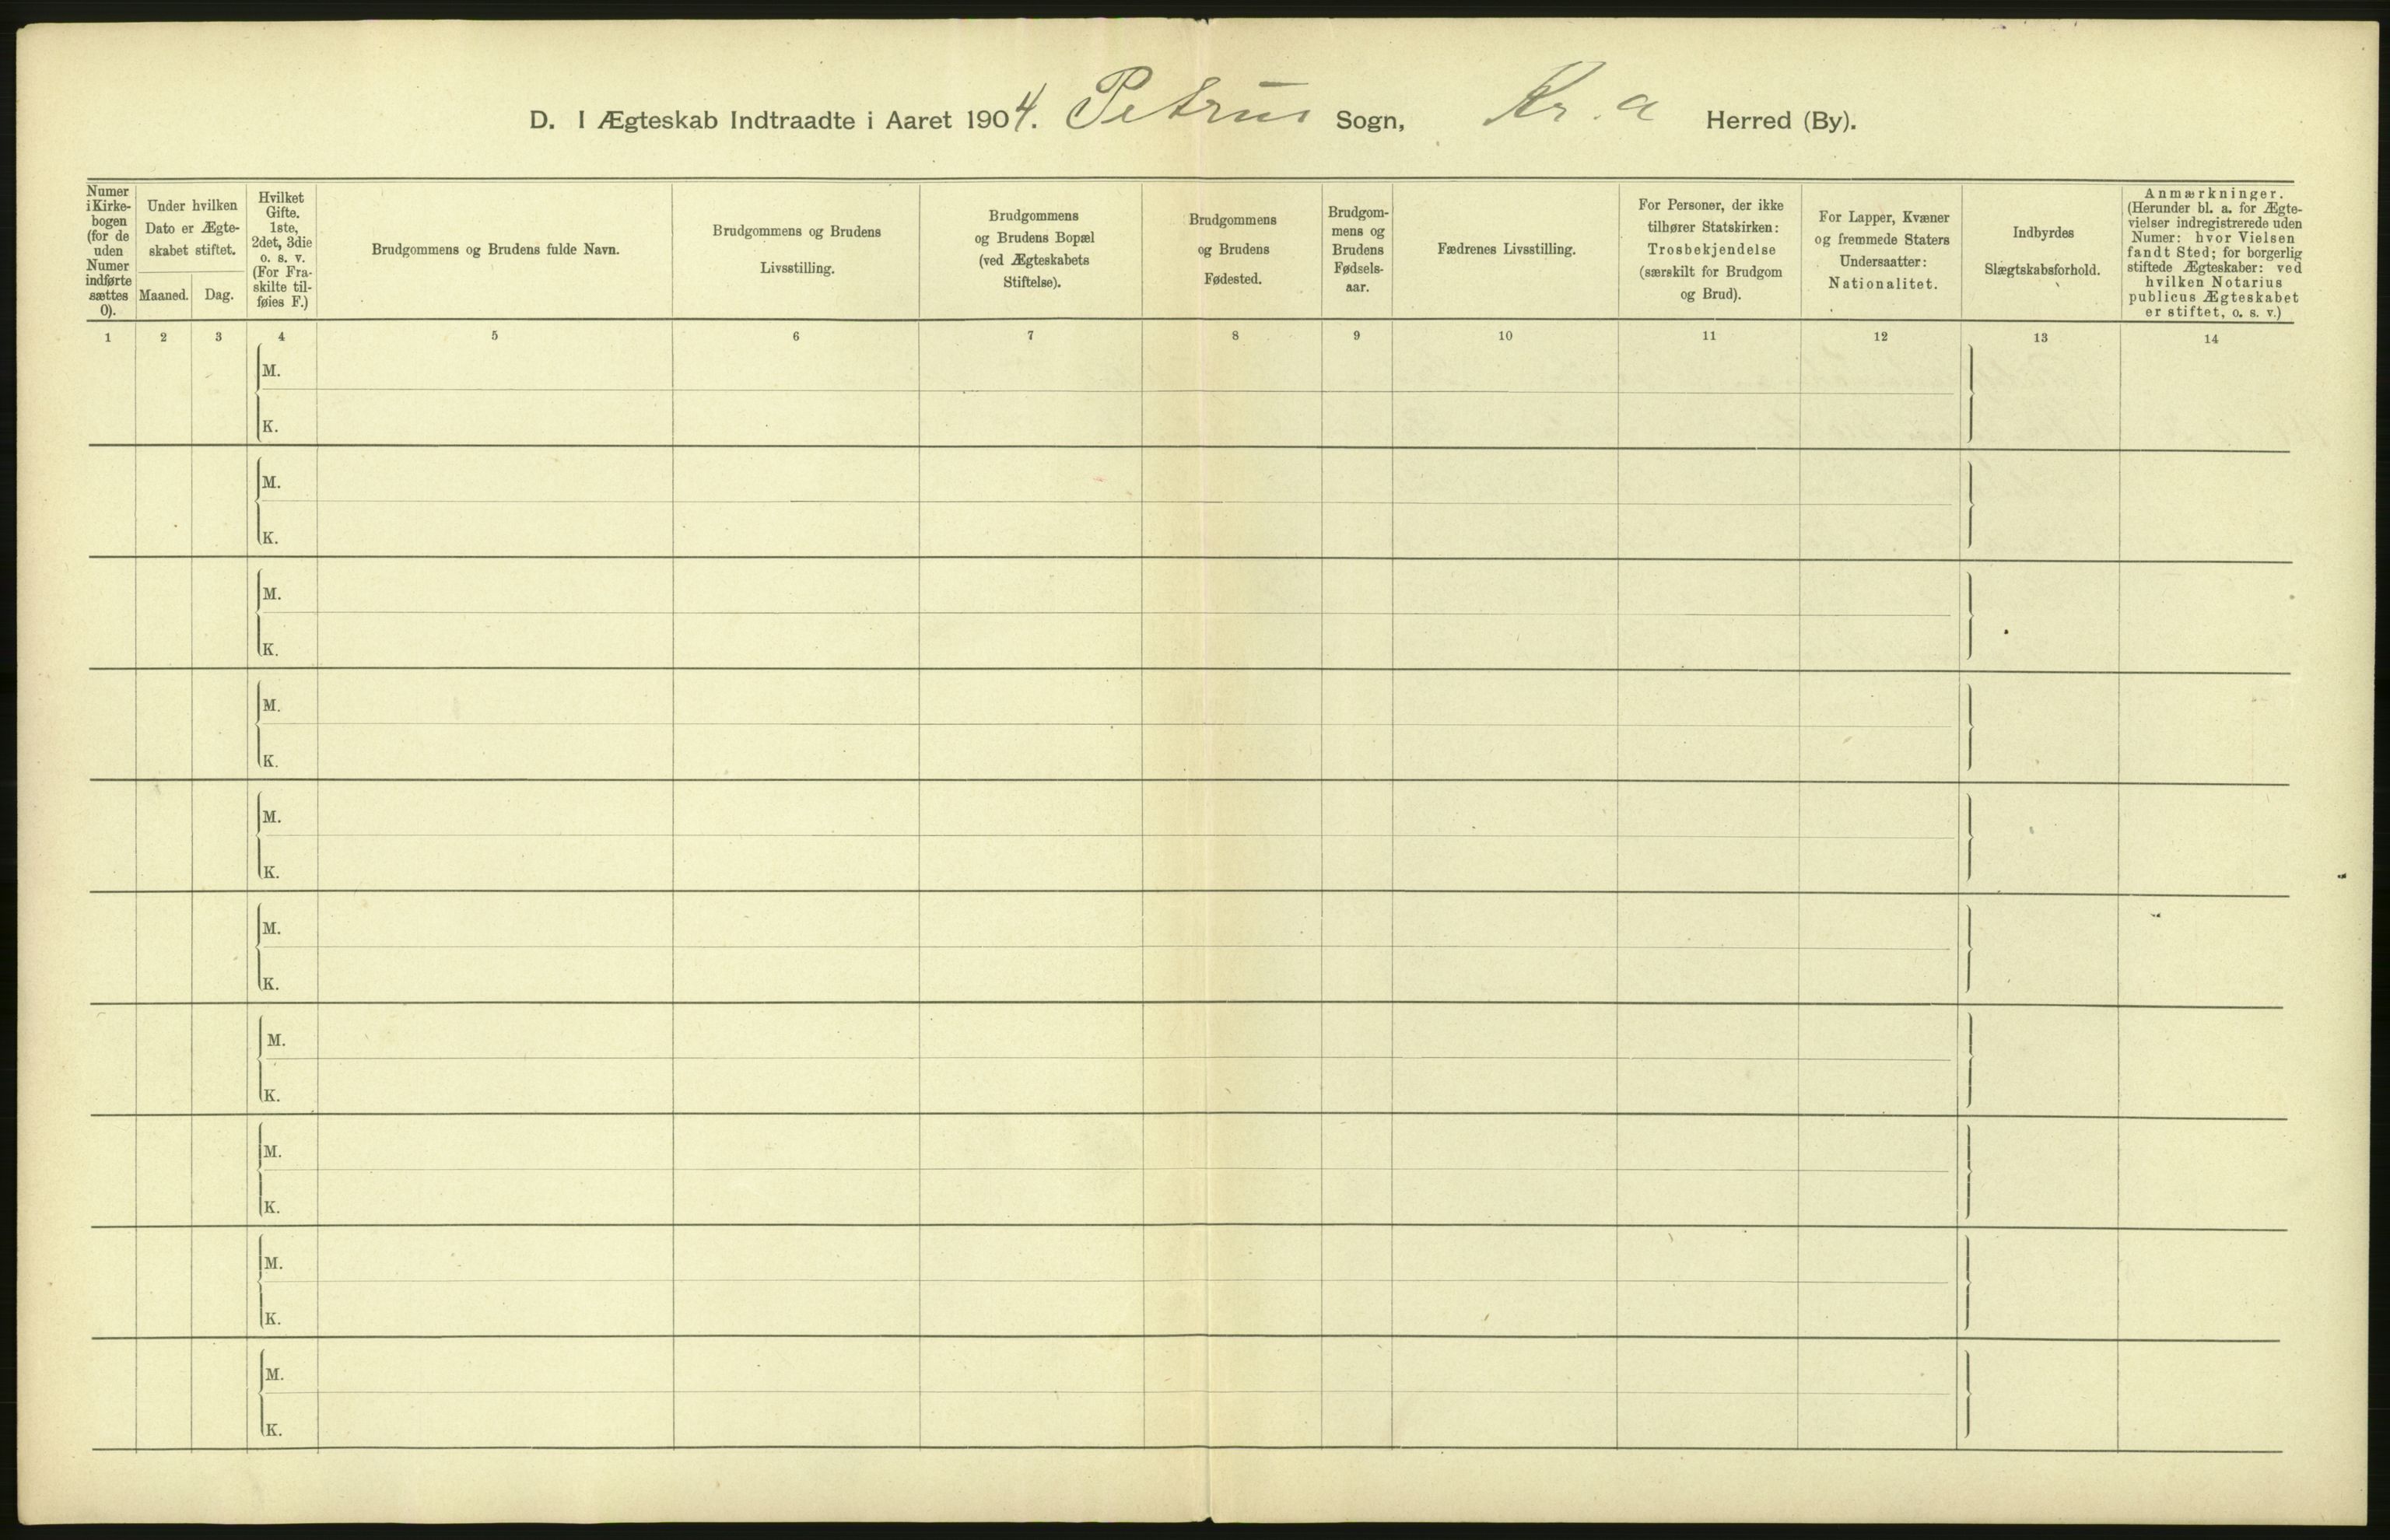 D. I Ægteskab Indtraadte i Aaret 1904. Petrus Sogn, Kr.a Herred (By).
Numer
i Kirke-
bogen
(for de
uden
Numer
indførte
sættes
0).
Under hvilken
Dato er Ægte-
skabet stiftet.
Maaned. Dag.
Hvilket
Gifte.
1ste,
2det, 3die
o. s. v.
(For Fra-
skilte til-
føies F.)
Brudgommens og Brudens fulde Navn.
Brudgommens og Brudens
Livsstilling.
Brudgommens
og Brudens Bopæl
(ved Ægteskabets
Stiftelse).
Brudgommens
og Brudens
Fødested.
Brudgom-
mens og
Brudens
Fødsels-
aar.
Fædrenes Livsstilling.
For Personer, der ikke
tilhører Statskirken:
Trosbekjendelse
(særskilt for Brudgom
og Brud).
For Lapper, Kvæner
og fremmede Staters
Undersaatter:
Nationalitet.
Indbyrdes
Slægtskabsforhold.
Anmærkninger.
(Herunder bl. a. for Ægte-
vielser indregistrerede uden
Numer: hvor Vielsen
fandt Sted; for borgerlig
stiftede Ægteskaber: ved
hvilken Notarius
publicus Ægteskabet
er stiftet, o. s. v.)
1 2 3 4 5 6 7 8 9 10 11 12 13 14
M.
K.
M.
K.
M.
K.
M.
K.
M.
K.
M.
K.
M.
K.
M.
K.
M.
K.
M.
K.